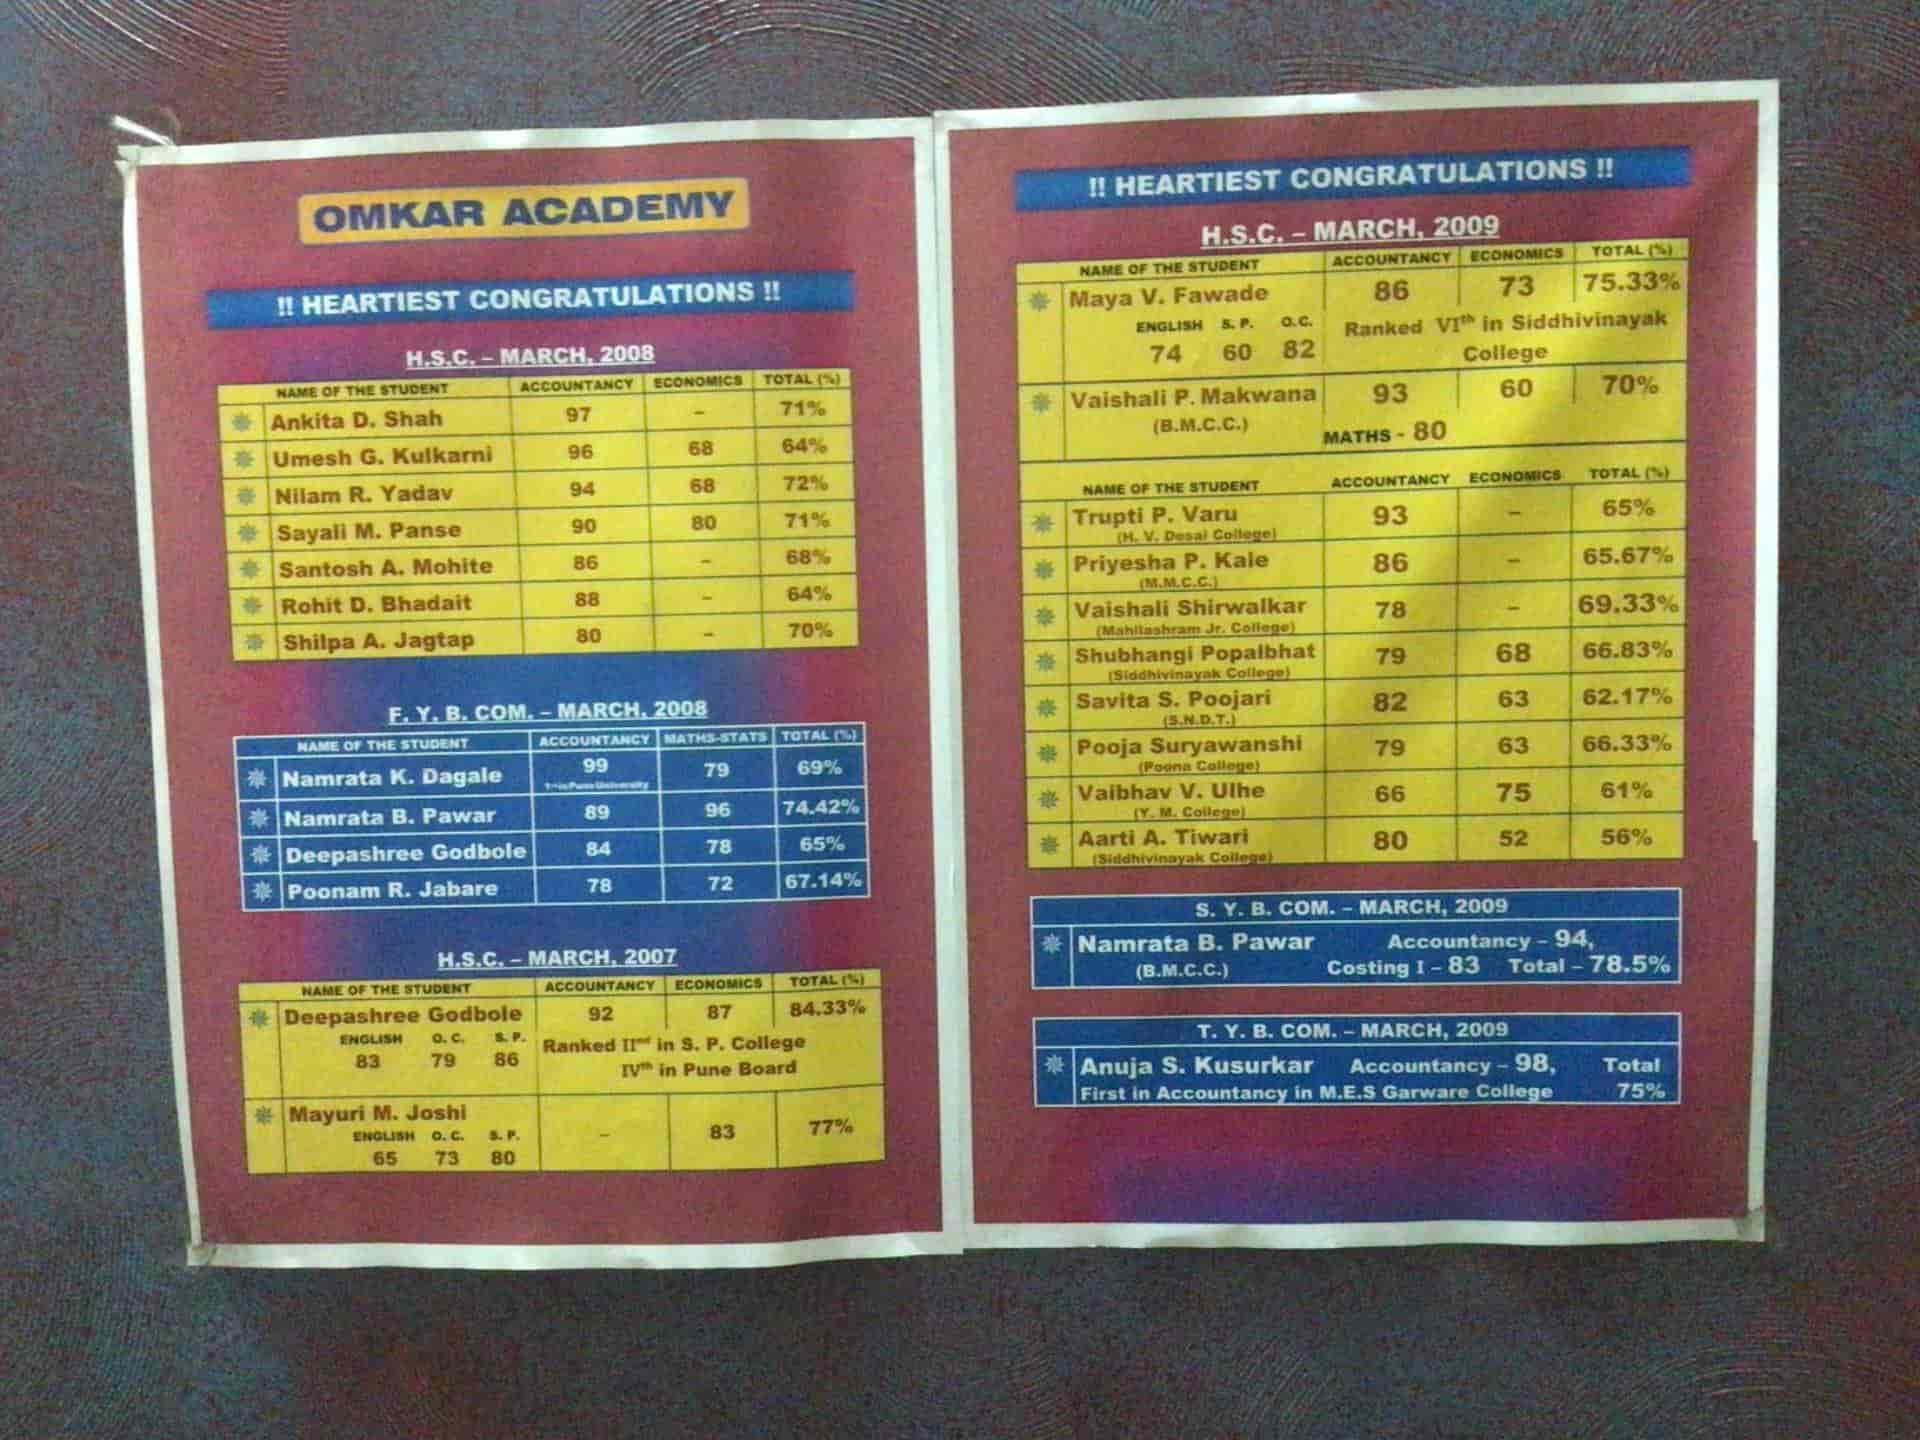 OMKAR ACADEMY
!! HEARTIEST CONGRATULATIONS !!
H.S.C. – MARCH, 2008
NAME OF THE STUDENT ACCOUNTANCY ECONOMICS TOTAL (%)
Ankita D. Shah 97 – 71%
Umesh G. Kulkarni 96 68 64%
Nilam R. Yadav 94 68 72%
Sayali M. Panse 90 80 71%
Santosh A. Mohite 86 – 68%
Rohit D. Bhadait 88 – 64%
Shilpa A. Jagtap 80 – 70%
F. Y. B. COM. – MARCH, 2008
NAME OF THE STUDENT ACCOUNTANCY MATHS-STATS TOTAL (%)
Namrata K. Dagale 99 79 69%
1st in Pune University
Namrata B. Pawar 89 96 74.42%
Deepashree Godbole 84 78 65%
Poonam R. Jabare 78 72 67.14%
H.S.C. – MARCH, 2007
NAME OF THE STUDENT ACCOUNTANCY ECONOMICS TOTAL (%)
Deepashree Godbole 92 87 84.33%
ENGLISH O. C. S. P. Ranked IInd in S. P. College
83 79 86 IVth in Pune Board
Mayuri M. Joshi – 83 77%
ENGLISH O. C. S. P.
65 73 80
!! HEARTIEST CONGRATULATIONS !!
H.S.C. – MARCH, 2009
NAME OF THE STUDENT ACCOUNTANCY ECONOMICS TOTAL (%)
Maya V. Fawade 86 73 75.33%
ENGLISH S. P. O.C. Ranked VIth in Siddhivinayak
74 60 82 College
Vaishali P. Makwana 93 60 70%
(B.M.C.C.) MATHS - 80
NAME OF THE STUDENT ACCOUNTANCY ECONOMICS TOTAL (%)
Trupti P. Varu 93 – 65%
(H. V. Desai College)
Priyesha P. Kale 86 – 65.67%
(M.M.C.C.)
Vaishali Shirwalkar 78 – 69.33%
(Mahilashram Jr. College)
Shubhangi Popalbhat 79 68 66.83%
(Siddhivinayak College)
Savita S. Poojari 82 63 62.17%
(S.N.D.T.)
Pooja Suryawanshi 79 63 66.33%
(Poona College)
Vaibhav V. Ulhe 66 75 61%
(Y. M. College)
Aarti A. Tiwari 80 52 56%
(Siddhivinayak College)
S. Y. B. COM. – MARCH, 2009
Namrata B. Pawar Accountancy – 94,
(B.M.C.C.) Costing I – 83 Total – 78.5%
T. Y. B. COM. – MARCH, 2009
Anuja S. Kusurkar Accountancy – 98, Total
First in Accountancy in M.E.S Garware College 75%